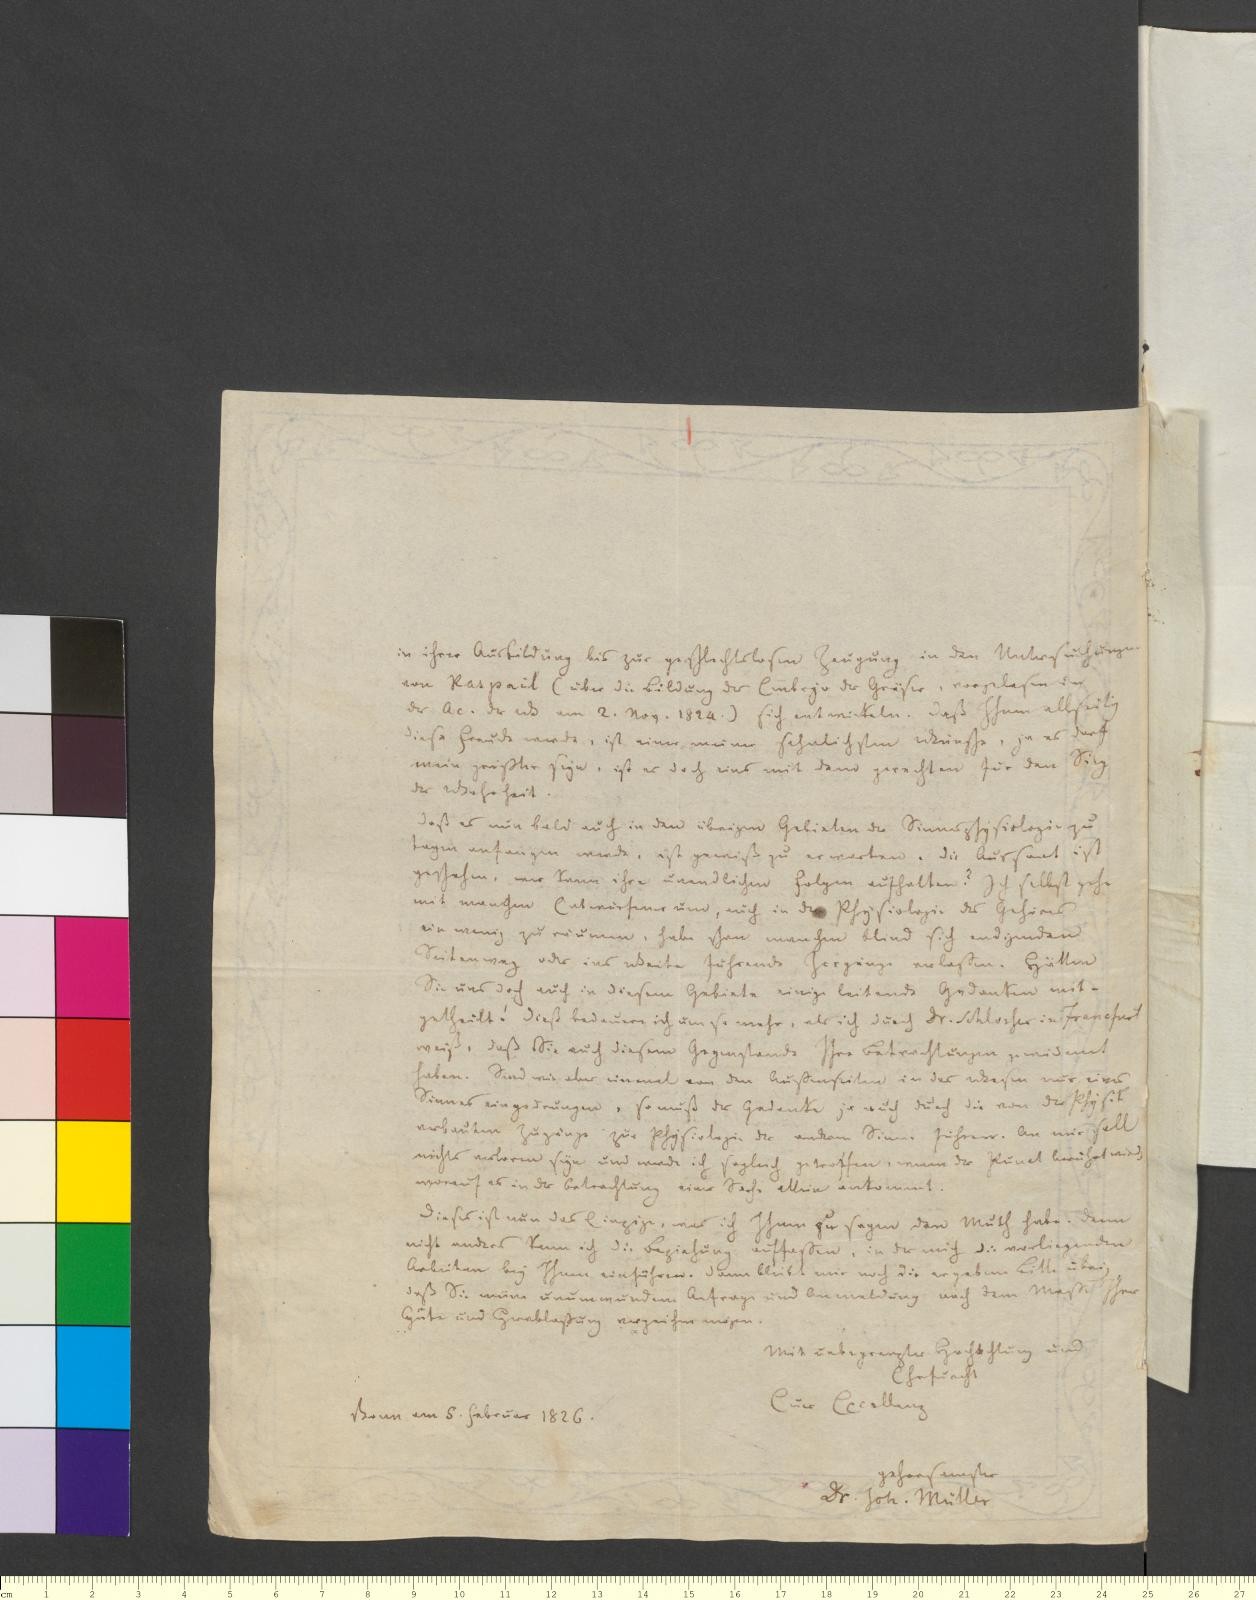 in ihrer Ausbildung bis zur geschlechtslosen Zeugung in den Untersuchungen
von Raspail (über die Bildung des Embryo der Gräser, vorgelesen in
der Ac. der am 2. Nov. 1824.) sich entwickeln. Daß Ihnen allseitig
diese Freude werde, ist einer meiner sehnlichsten Wünsche, ja es darf
mein größter seyn, ist es doch eins mit dem gerechten für den Sieg
der Wahrheit.
Daß es nun bald auch in den übrigen Gebieten der Sinnesphysiologie zu
tagen anfangen werde, ist gewiß zu erwarten. Die Aussaat ist
geschehen, wer kann ihre unendlichen Folgen aufhalten? Ich selbst gehe
mit manchen Entwürfen um, auch in der Physiologie des Gehirns
ein wenig zu räumen, habe schon manchen blind sich endigenden
Seitenweg oder ins Weite führende verlassen. Hätten
Sie uns doch auch in diesem Gebiete einige leitende Gedanken mit-
getheilt! Dieß bedauere ich um so mehr, als ich durch Dr. Schlosser in Francfurt
weiß, daß Sie auch diesem Gegenstande Ihre Betrachtungen gewidmet
haben. Sind wir aber einmal von den Außenseiten in das Wesen nur eines
Sinnes eingedrungen, so muß der Gedanke ja auch durch die von der Physik
verbauten Zugänge zur Physiologie der andern Sinne führen. An mir soll
nichts verloren seyn und werde ich sogleich getroffen, wenn der Punct berührt wird
worauf es in der Betrachtung einer Sache allein ankommt.
Dieses ist nun das Einzige, was ich Ihnen zu sagen den Muth habe. Denn
nicht anders kann ich die Beziehung auffassen, in der mich die vorliegenden
Arbeiten bey Ihnen einführen. Dann bleibt mir noch die ergebene Bitte übrig,
daß Sie meine unumwundene Anfrage und Anmeldung nach dem Maße Ihrer
Güte und Herablaßung verzeihen mögen.
Mit unbegrenzter Hochachtung und
Ehrfurcht
Euer Excellenz
Bonn am 5. Februar 1826.
gehorsamster
Dr. Joh. Müller